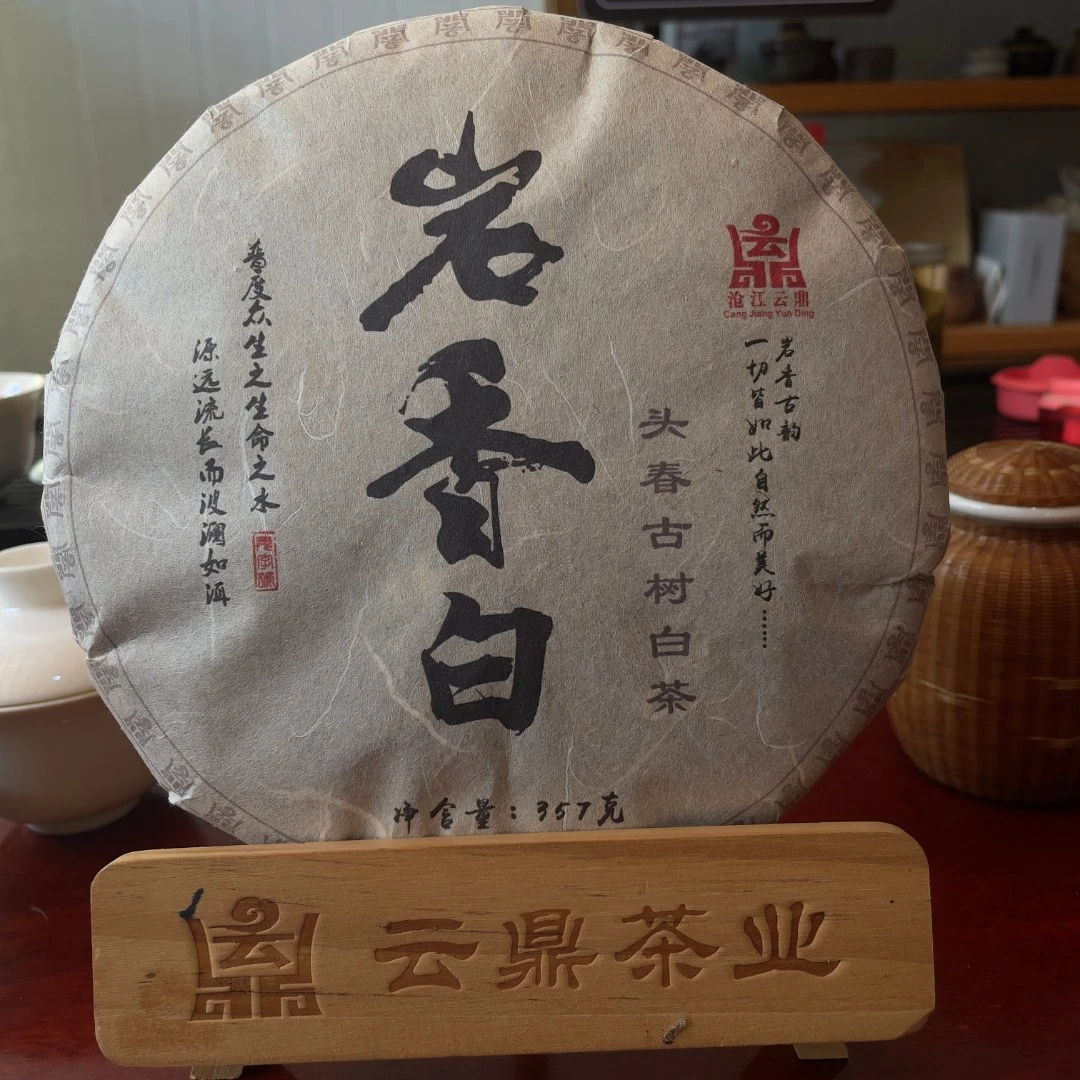 岩香白
沧江云鼎
Cang Jiang Yun Ding
岩香古韵
一切皆如此自然而美好……
头春古树白茶
普度众生之生命之水
源远流长而波澜如洱
净含量：357克
云鼎
云鼎茶业